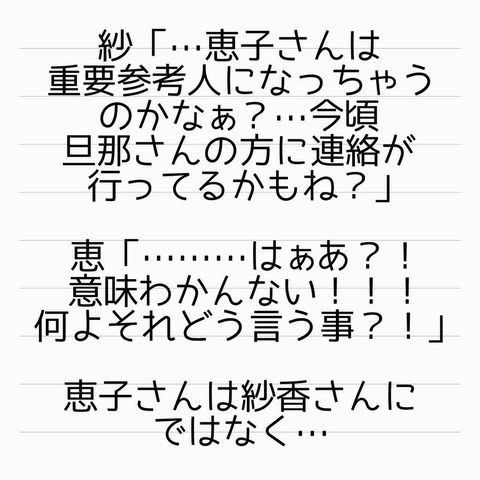 紗「…恵子さんは
重要参考人になっちゃう
のかなぁ？…今頃
旦那さんの方に連絡が
行ってるかもね？」
恵「………はぁあ？！
意味わかんない！！！
何よそれどう言う事？！」
恵子さんは紗香さんに
ではなく…